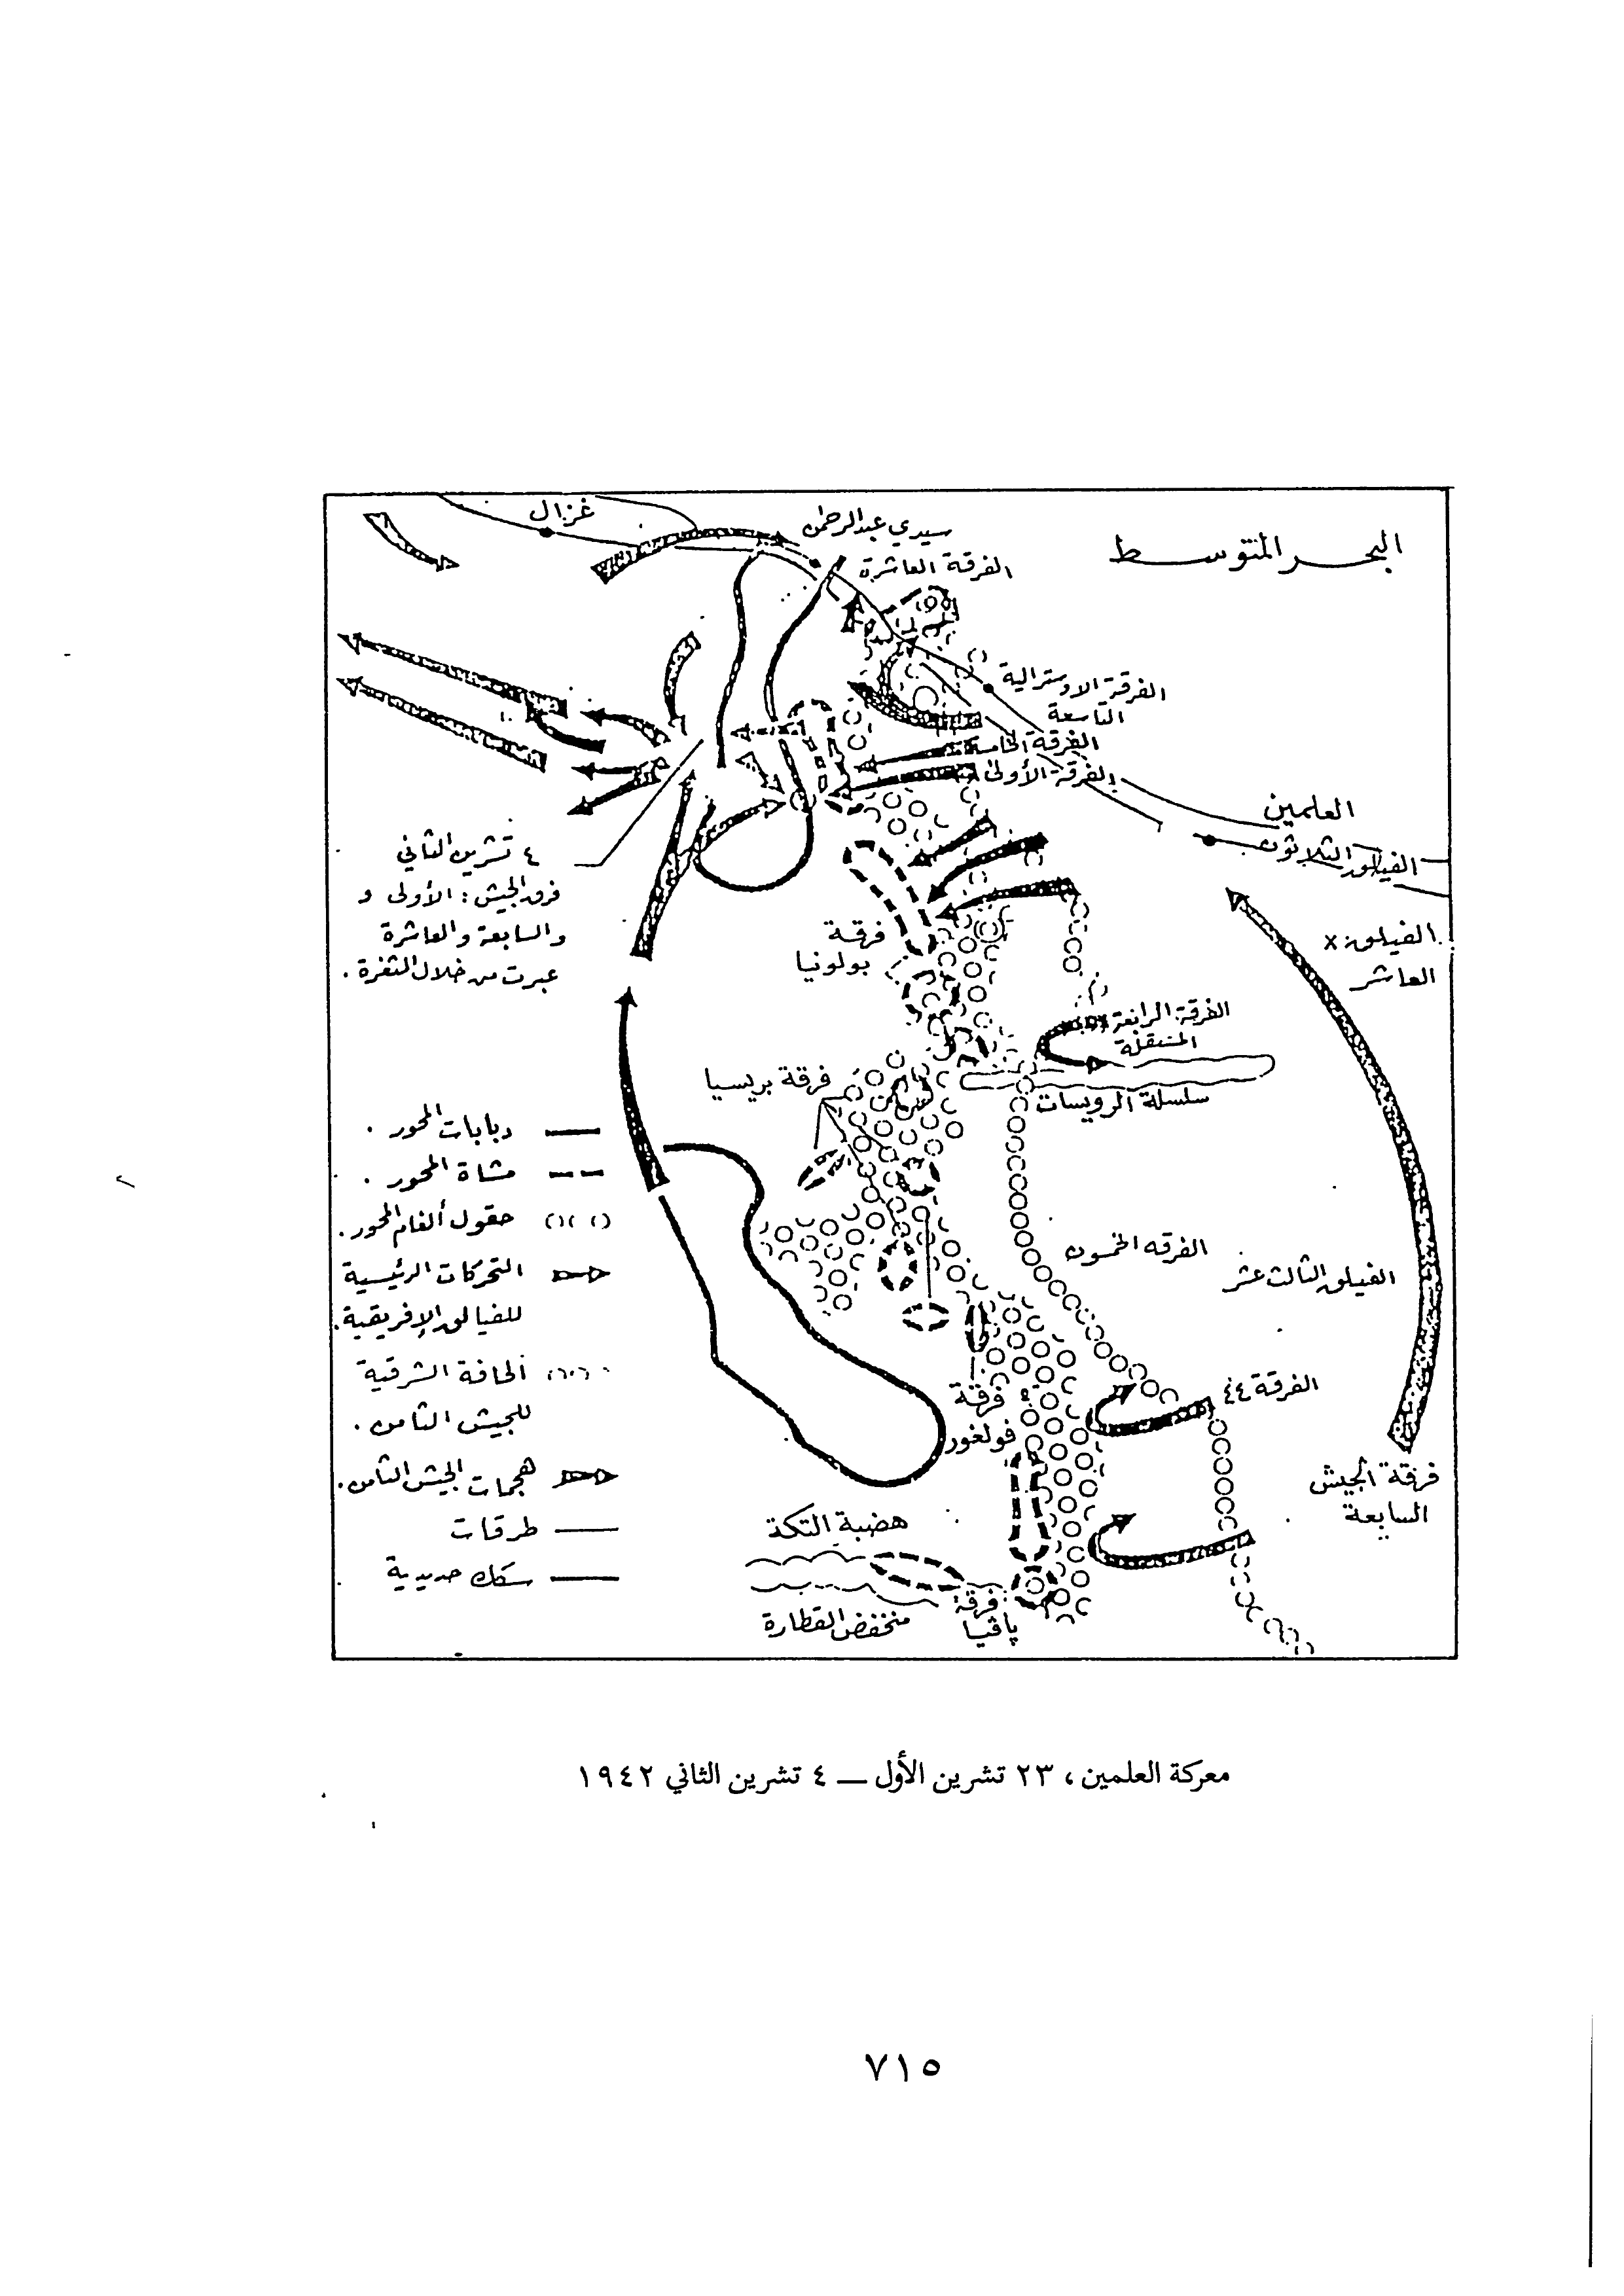 غزال
سيدي عبدالرحمن
البحر المتوسط
الفرقة العاشرة
الفرقة الاوسترالية
التاسعة
الفرقة الخامسة
الفرقة الأولى
العلمين
الفيلق الثلاثون
٤ تشرين الثاني
فرق الجيش: الأولى و
والسابعة والعاشرة
عبرت من خلال الثغرة.
فرقة
بولونيا
الفيلق x
العاشر
الفرقة الرابعة
المستقلة
سلسلة الرويسات
فرقة بريسيا
الفرقه الخمسون
الفيلق الثالث عشر
الفرقة ٤٤
فرقة
فولغور
فرقة الجيش
السابعة
هضبة التكة
منخفض القطارة
فرقة
پاڤيا
دبابات المحور.
مشاة المحور.
حقول ألغام المحور.
التحركات الرئيسية
للفيالق الإفريقية.
الحافة الشرقية
للجيش الثامن.
هجمات الجيش الثامن.
طرقات
سكك حديدية
معركة العلمين، ٢٣ تشرين الأول — ٤ تشرين الثاني ١٩٤٢
٧١٥